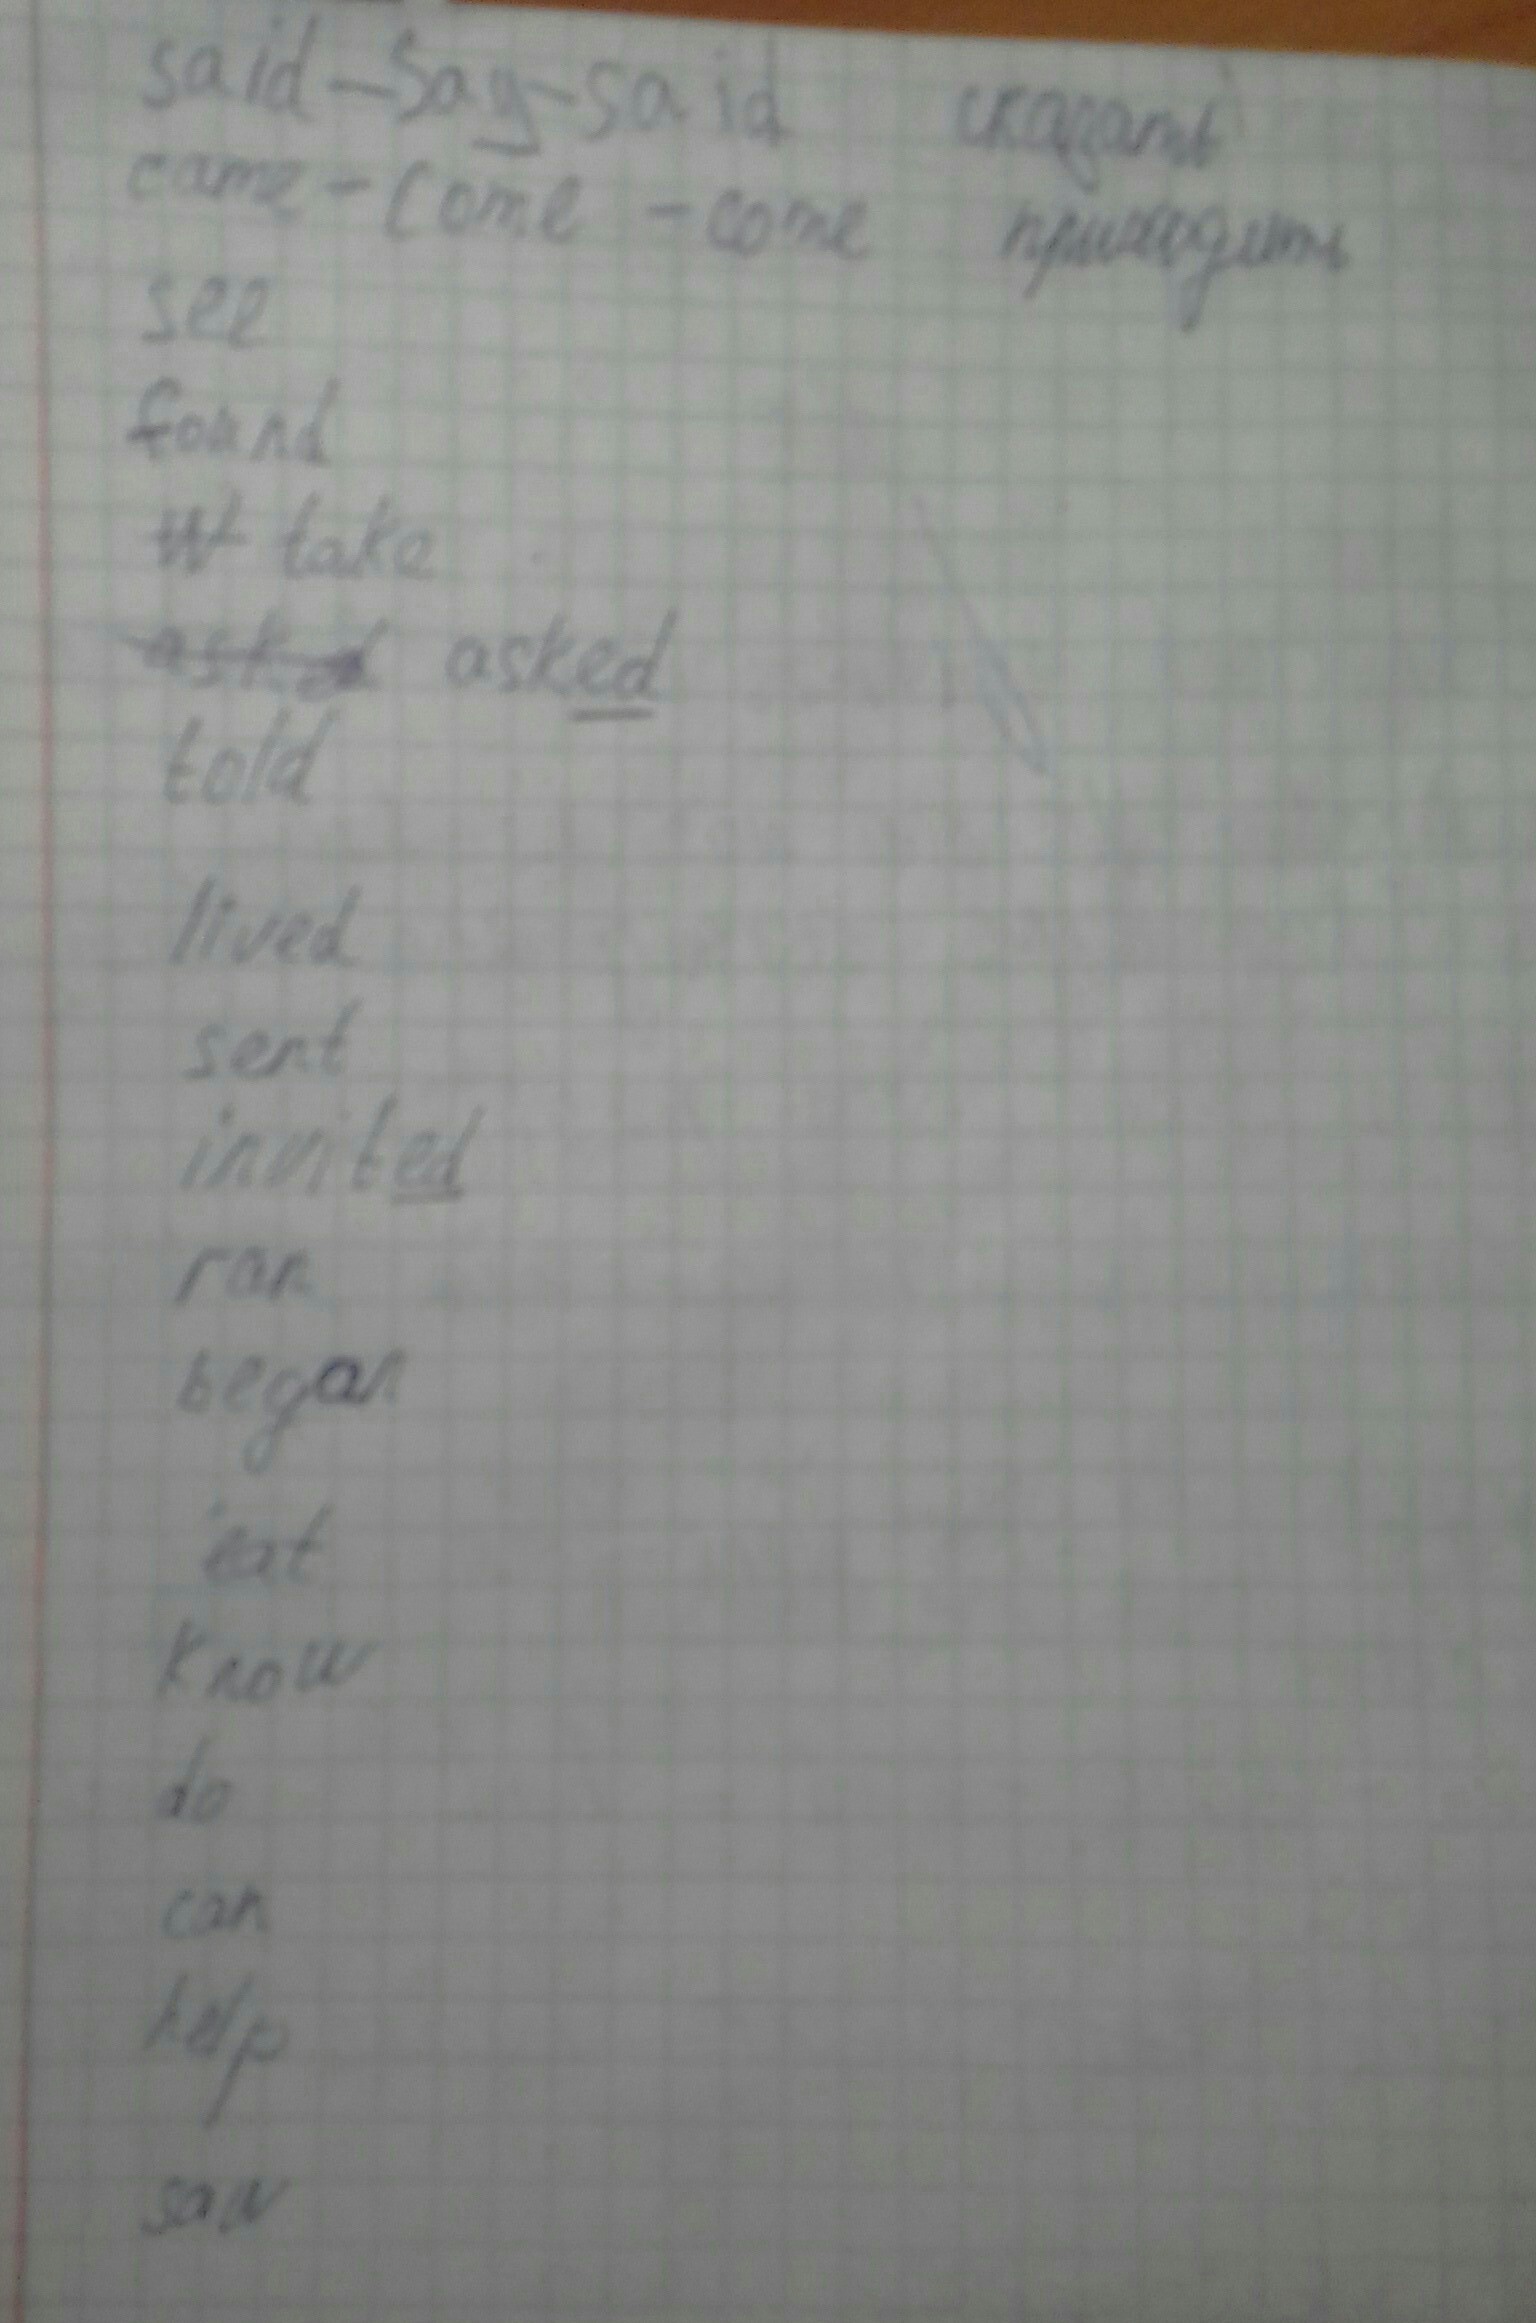 said – Say – said сказать
came – Come – come приходить
see
found
take
asked asked
told
lived
sent
invited
ran
began
eat
know
do
can
help
saw